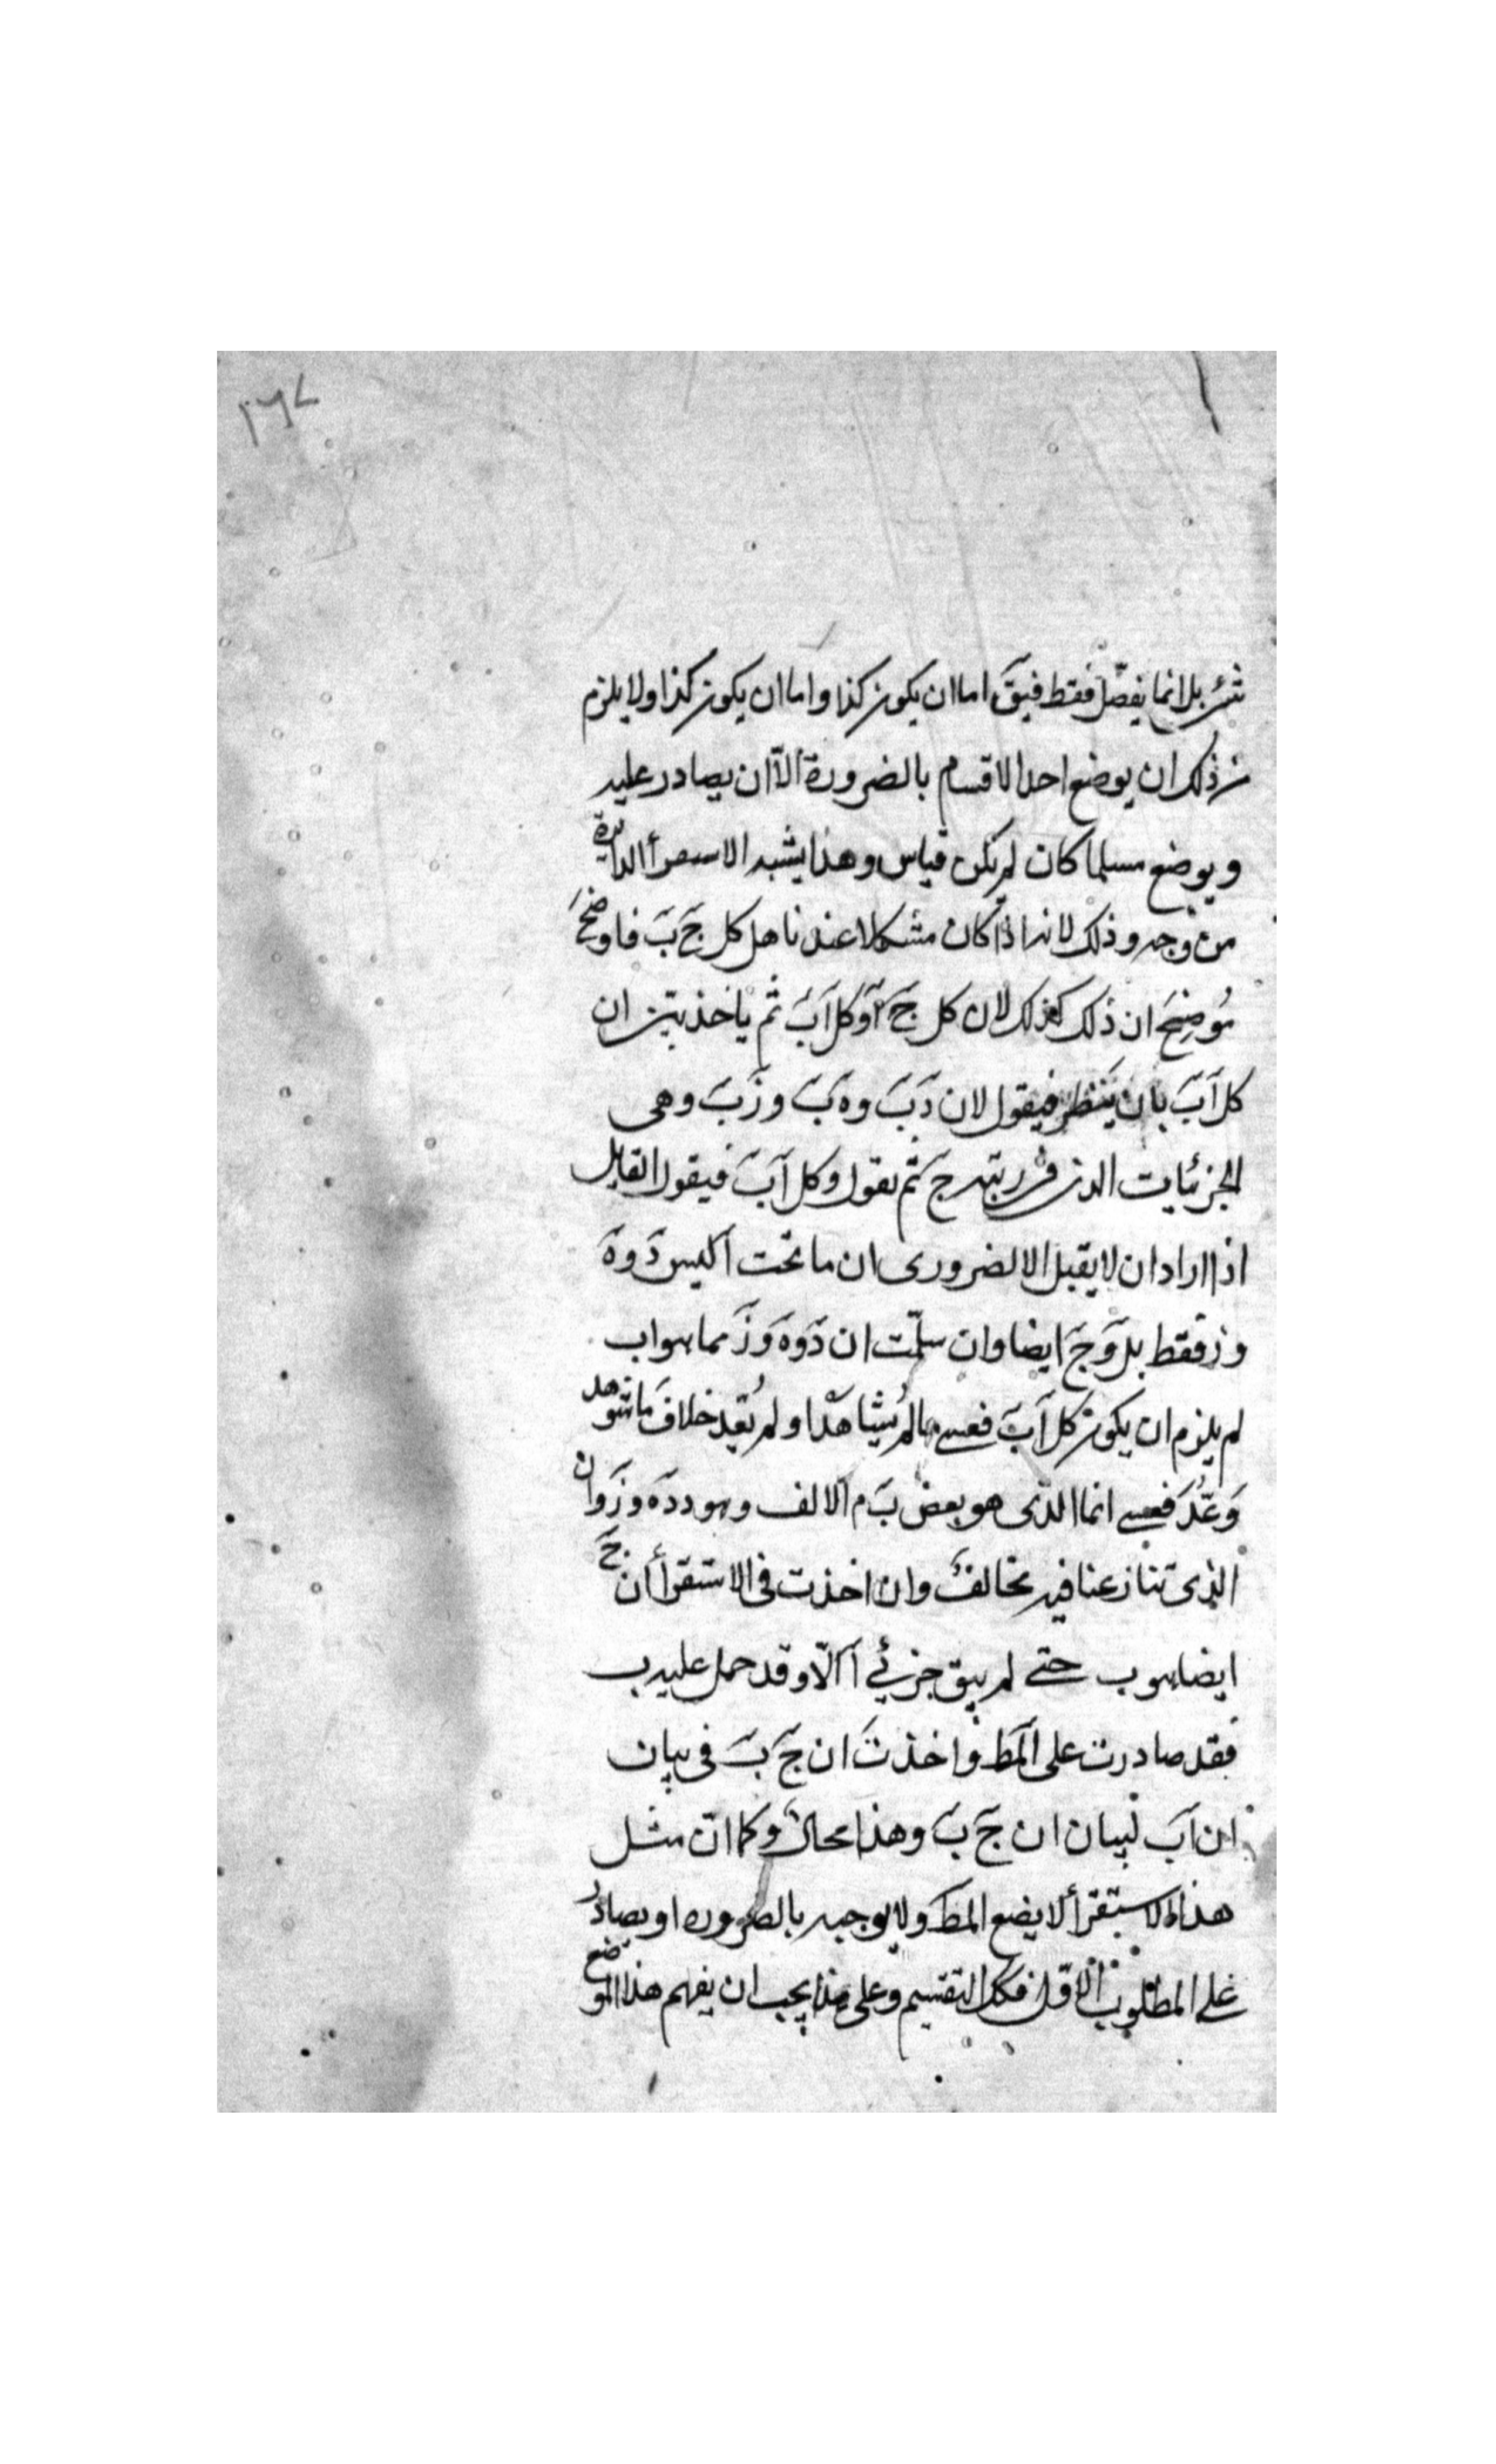 ١٦٧
شئ بل انما يفصّل فقط فيقَ اما ان يكون كذا واما ان يكون كذا ولا يلزم
من ذلك ان يوضع احد الاقسام بالضرورة الّا ان يصادر عليه
ويوضع مسلما كان لم يكن قياس وهذا يشبه الاستقرأ الدايرة
من وجه وذلك لانه اذا كان مشكلا عندنا هل كل جَ بَ فاوضحَ
مُوضِحَ ان ذلك كذلك لان كل جَ آ وكل آ بَ ثم ياخذ يبين ان
كل آ بَ بان يَنظر فيقول لان دَ بَ وهَ بَ وزَ بَ وهى
الجزئيات الذى فى رتبه جَ ثم يقول وكل آ بَ فيقول القايل
اذا اراد ان لا يقبل الا لضرورى ان ما تحت آ ليس دَ وهَ
وز فقط بل وَجَ ايضا وان سلّمت ان دَ وهَ وَزَ مما هو اب
لم يلزم ان يكون كل آ بَ فعسى مالم يُشاهَد او لم يُعَد خلافَ ما شوهد
وَعُدَّ فعسى انما الذى هو بعض بَ م الالف وهو د دَهَ وزَ وان
الذى تنازعنا فيه مخالفٌ وان اخذت فى الاستقرأ ان جَ
ايضا هو ب حتى لم يبق جزئي آ الّا وقد حمل عليه ب
فقد صادرت على المَط واخذتَ ان جَ بَ فى بيان
ان آ بَ لبيان ان جَ بَ وهذا محالٌ وكما انّ مثل
هذا الاستقرأ لا يضع المط ولا يوجبه بالضروره او يصادر
على المطلوب الاوّل فكك التقسيم وعلى هذا يجب ان يفهم هذا الموضع